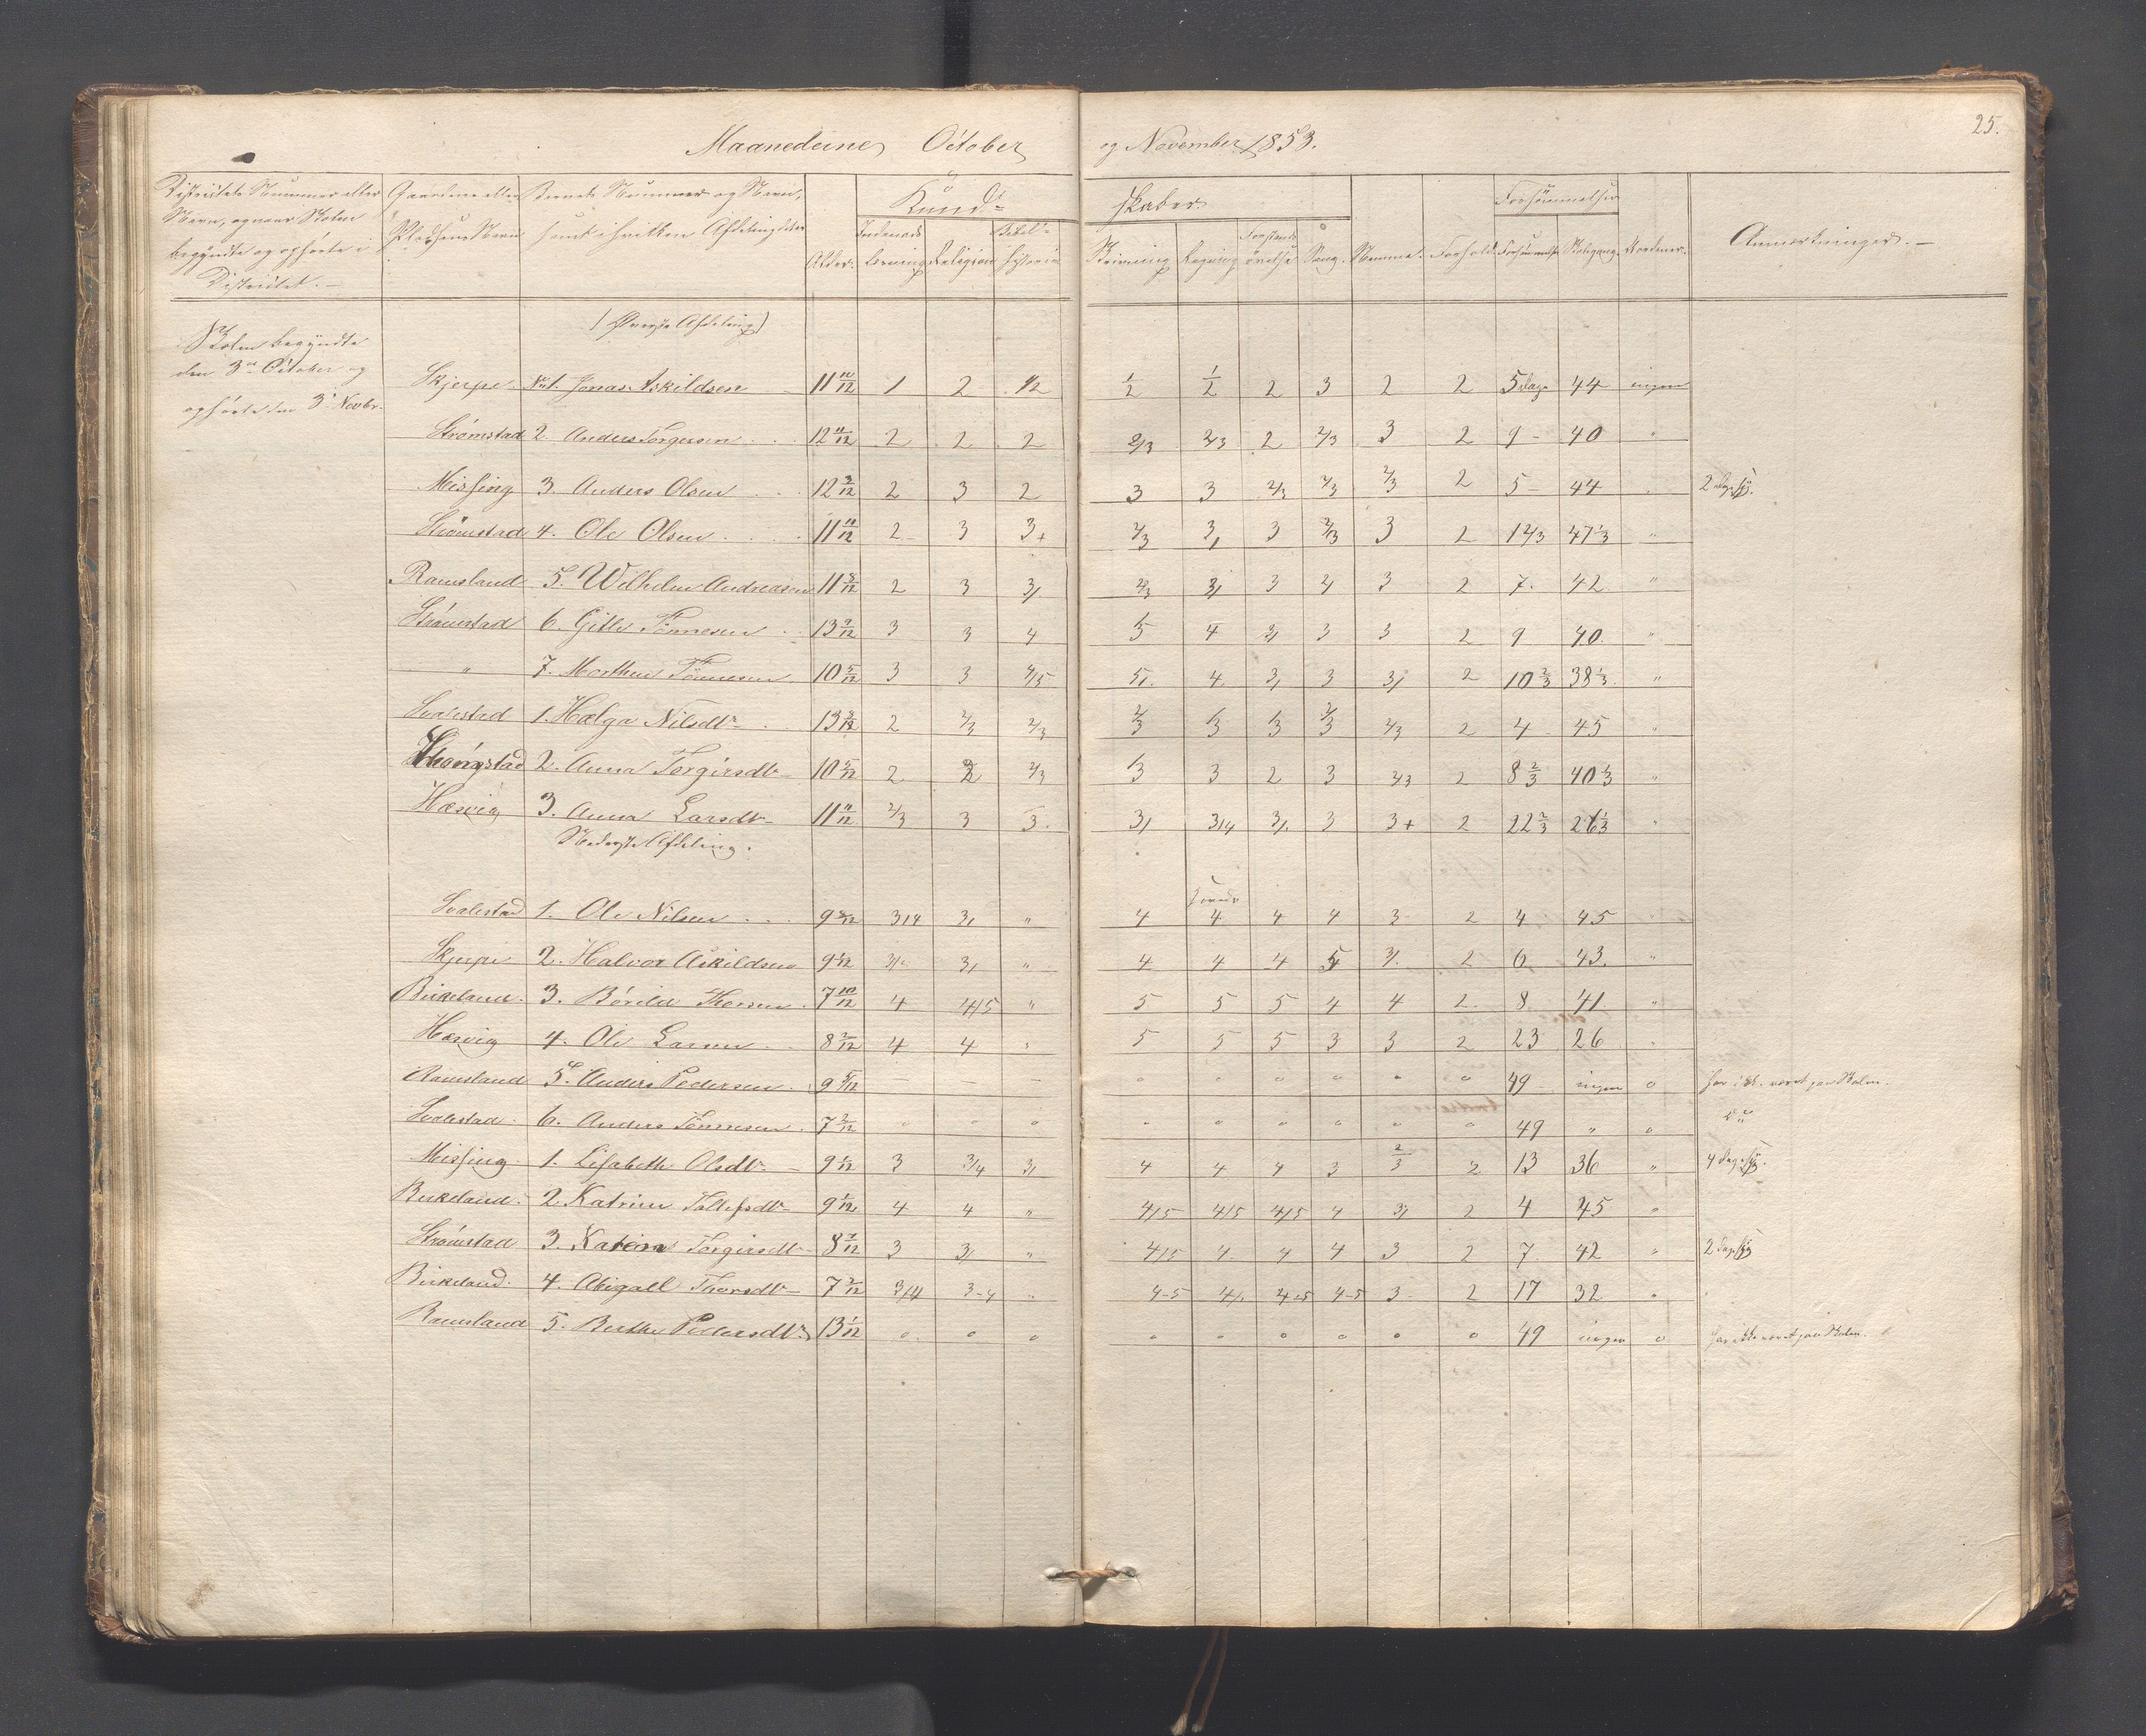 Maanederne October og November 1853.
25.
Districtets Nummer eller Navn, og naar Skolen begyndte og ophørte i Districtet.
Gaardens eller Pladsens Navn
Barnets Nummer og Navn, samt i hvilken Afdeling det er
Alder.
Kund-skaber.
Indenads Læsning
Religion
Bibel-historie
Skrivning
Regning
Forstands øvelse
Sang.
Nemme.
Forhold.
Forsømmelser
Forsømmelse
Skolegang.
Anmærkninger.
(Øverste Afdeling)
Skolen begyndte
den 3die October og
ophørte den 3' Novbr.
Skjerpe No 1. Jonas Askildsen 11 10/12 1 2 1/2 1/2 1/2 2 3 2 2 5 dage 44 ingen
Strømstad 2. Anders Torgersen 12 11/12 2 2 2 2/3 2/3 2 2/3 3 2 9 40 "
Missing 3. Anders Olsen 12 9/12 2 3 2 3 3 2/3 2/3 2/3 2 5 44 2 dage syg.
Strømstad 4. Ole Olsen 11 11/12 2 3 3+ 2/3 3/ 3 2/3 3 2 1 2/3 47 1/3 "
Ramsland 5. Wilhelm Andreasen 11 3/12 2 3 3/ 2/3 3/ 3 2/ 3 2 7 42 "
Strømstad 6. Gitle Tönnesen 13 9/12 3 3 4 5 4 3/ 3 3 2 9 40 "
" 7. Morthen Tönnesen 10 5/12 3 3 4/5 5/ 4 3/ 3 3/ 2 10 2/3 38 1/3 "
Svalestad 1. Hælga Nilsdtr 13 3/12 2 2/3 2/3 2/3 /3 /3 2/3 2/3 2 4 45 "
Strømstad 2. Anna Torgersdtr 10 5/12 2 2 2/3 /3 3 2 3 2/3 2 8 2/3 40 1/3 "
Hæsvig 3. Anna Larsdtr 11 11/12 2/3 3 3 3/ 3/4 3/ 3 3+ 2 22 2/3 26 1/3 "
Nederste Afdeling.
Svalestad 1. Ole Nilsen 9 3/4 3/ " 4 4 4 4 3 2 4 45 "
Skjerpe 2. Halvor Askildsen 9 3/ 3/ " 4 4 4 5 3/ 2 6 43 "
Birkeland. 3. Börild Thorsen 7 10/12 4 4/5 " 5 5 5 4 4 2 8 41 "
Hæsvig 4. Ole Larsen 8 2/12 4 4 " 5 5 5 3 3 2 23 26 "
Ramsland 5. Anders Pedersen 9 5/12 — — — o o o o o o 49 ingen o har ikke været paa Skolen.
Svalestad 6. Anders Tönnesen 7 2/12 o o o o o o o o o 49 " o
Missing 1. Lisabeth Olsdtr 9 1/12 3 3/4 3/ 4 4 4 3 2/3 2 13 36 " 4 dage syg.
Birkeland. 2. Katrine Tollefsdtr 9 1/12 4 4 " 4/5 4/5 4/5 4 3/ 2 4 45 "
Strømstad 3. Katrine Torgersdtr 8 7/12 3 3/ " 4/5 4 4 4 3 2 7 42 " 2 dage syg
Birkeland. 4. Abigall Thorsdtr 7 2/12 3/4 3-4 " 4-5 4/ 4-5 4-5 3 2 17 32 "
Ramsland 5. Berthe Pedersdtr 13 1/12 o o o o o o o o o 49 ingen o har ikke været paa Skolen.